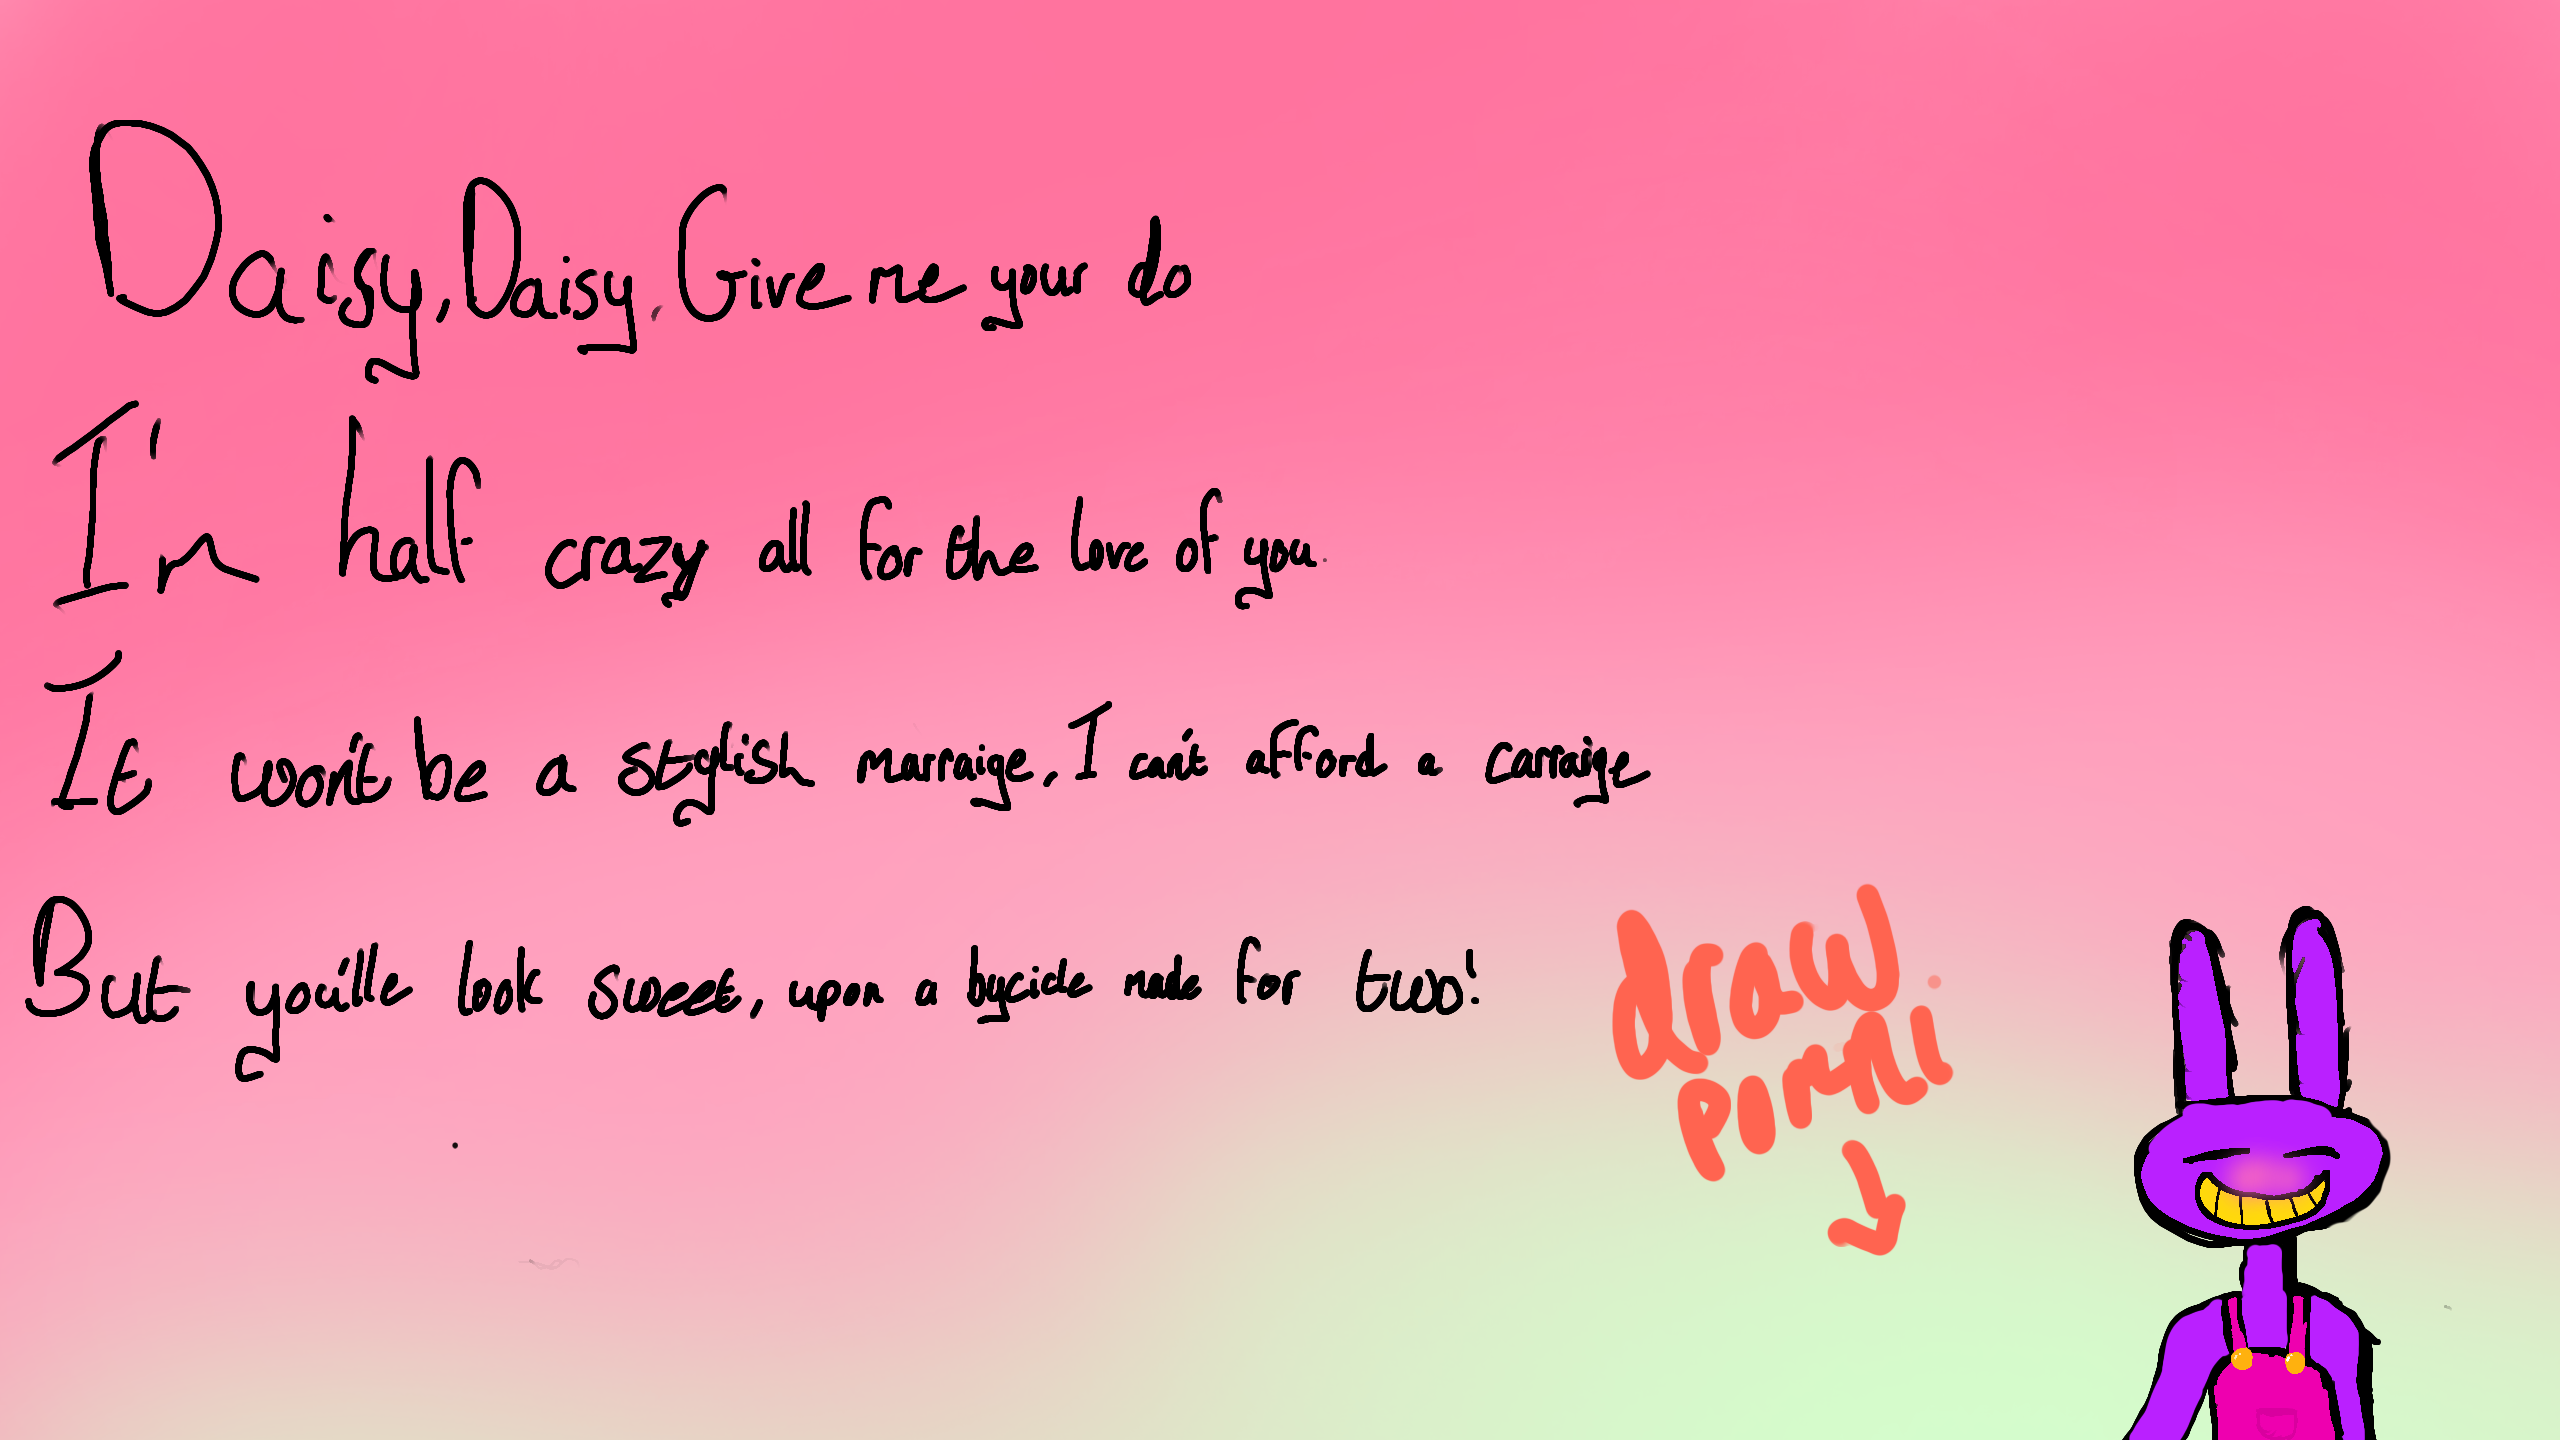 Daisy, Daisy. Give me your do
I'm half crazy all for the love of you.
It won't be a stylish marraige, I can't afford a carraige
But you'lle look sweet, upon a bycicle made for two!
draw
pomni